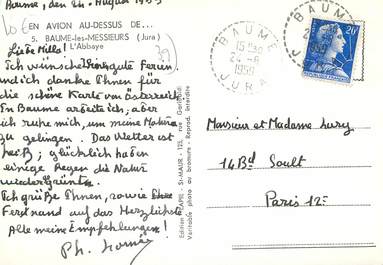 Baume, den 24. August 1955
EN AVION AU-DESSUS DE...
5. BAUME-les-MESSIEURS (Jura)
L'Abbaye
Liebe Mills!
Ich wünsche Ihnen gute Ferien
und ich danke Ihnen für
die schöne Karte von Österreich
In Baume arbeite ich; aber
ich ruhe mich, um meine
zu gelingen. Das Wetter ist
heiß; glücklich haben
einige Regen die Natur
wiedergrünt.
Ich grüße Ihnen, sowie
Ferdinand auf das Herzlichste
Alle meine Empfehlungen!
Ph.
Edition LAPIE - St-MAUR - 123, rue Garibaldi
Véritable photo au bromure - Reprod. Interdite
BAUME
15H30
24-8
1955
JURA
BAUME
24-8
1955
20F
Monsieur et Madame
14 Bd Soult
Paris 12e